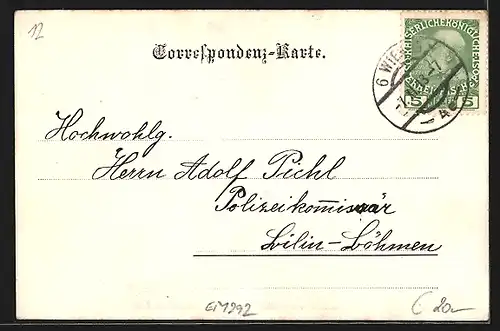 12
Correspondenz-Karte.
KAISERLICHE KÖNIGLICHE
5 5
6 WIEN
Hochwohlg.
Herrn Adolf Pichl
Polizeikomissär
Bilin-Böhmen
€ 20-